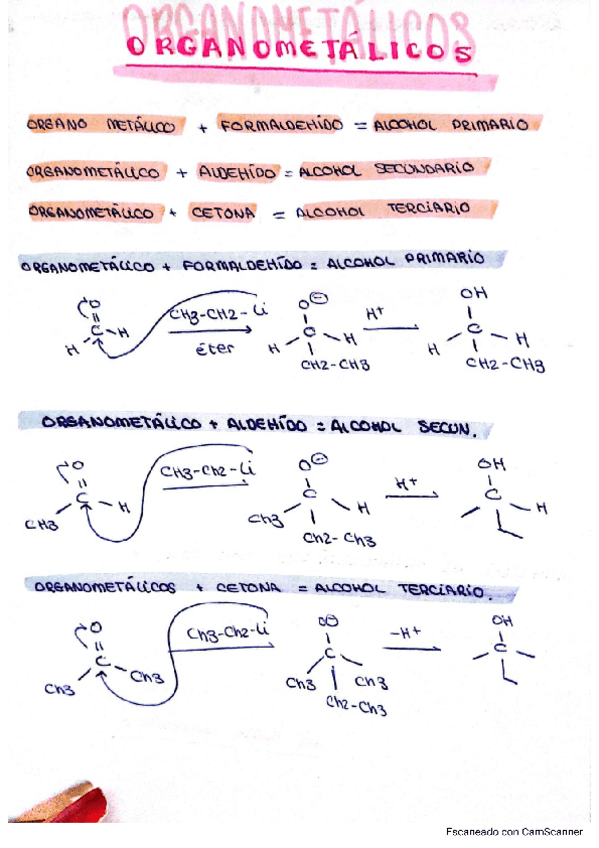 ORGANOMETÁLICOS
ORGANO METÁLICO + FORMALDEHÍDO = ALCOHOL PRIMARIO
ORGANOMETÁLICO + ALDEHÍDO = ALCOHOL SECUNDARIO
ORGANOMETÁLICO + CETONA = ALCOHOL TERCIARIO
ORGANOMETÁLICO + FORMALDEHÍDO = ALCOHOL PRIMARIO
O O⊖ OH
CH3-CH2-Li H+
C H C H C H
H éter H H
CH2-CH3 CH2-CH3
ORGANOMETÁLICO + ALDEHÍDO = ALCOHOL SECUN.
O CH3-CH2-Li O⊖ H+ OH
C H C H C H
CH3 CH3
CH2-CH3
ORGANOMETÁLICOS + CETONA = ALCOHOL TERCIARIO.
O CH3-CH2-Li O⊖ -H+ OH
C C C
CH3 CH3 CH3 CH3
CH2-CH3
Escaneado con CamScanner